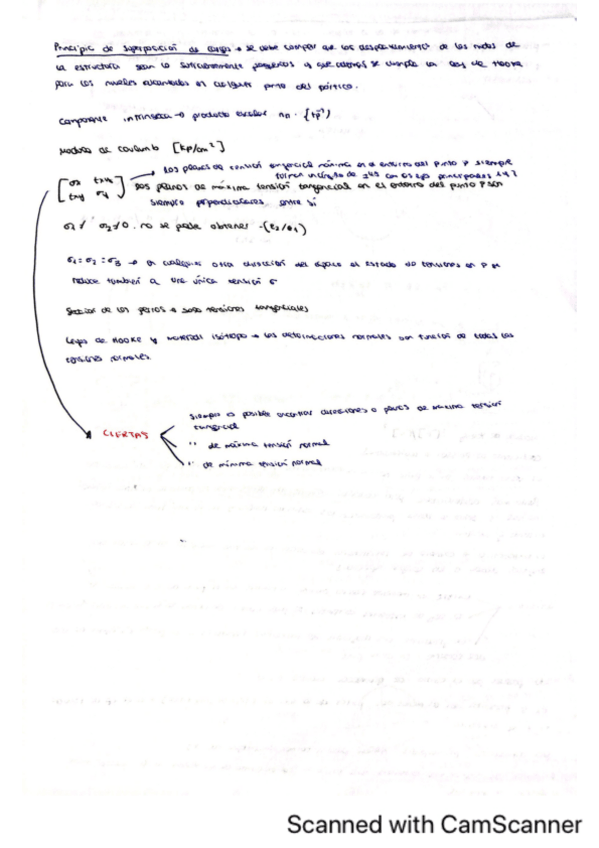 Principio de superposición de cargas → se debe cumplir que los desplazamientos de los nudos de
la estructura sean lo suficientemente pequeños y que además se cumpla la ley de HOOKE
para los niveles alcanzados en cualquier punto del pórtico.
Componente intrínseca → producto escalar
Módulo de coulomb [kp/cm²]
→ Los planos de tensión tangencial máxima en el entorno del punto P siempre
forman un ángulo de ±45 con los ejes principales 1 y 2
[σx txy
txy σy]
Los planos de máxima tensión tangencial en el entorno del punto P son
siempre perpendiculares entre sí
no se puede obtener
σ1 = σ2 = σ3 → en cualquier otra dirección del espacio el estado de tensiones en P se
reduce también a una única tensión σ
→ solo tensiones tangenciales
Leyes de HOOKE y material isótropo → las deformaciones normales son función de todas las
tensiones normales.
CIERTAS
siempre es posible encontrar direcciones o planos de máxima tensión
tangencial
'' de máxima tensión normal
'' de mínima tensión normal
Scanned with CamScanner